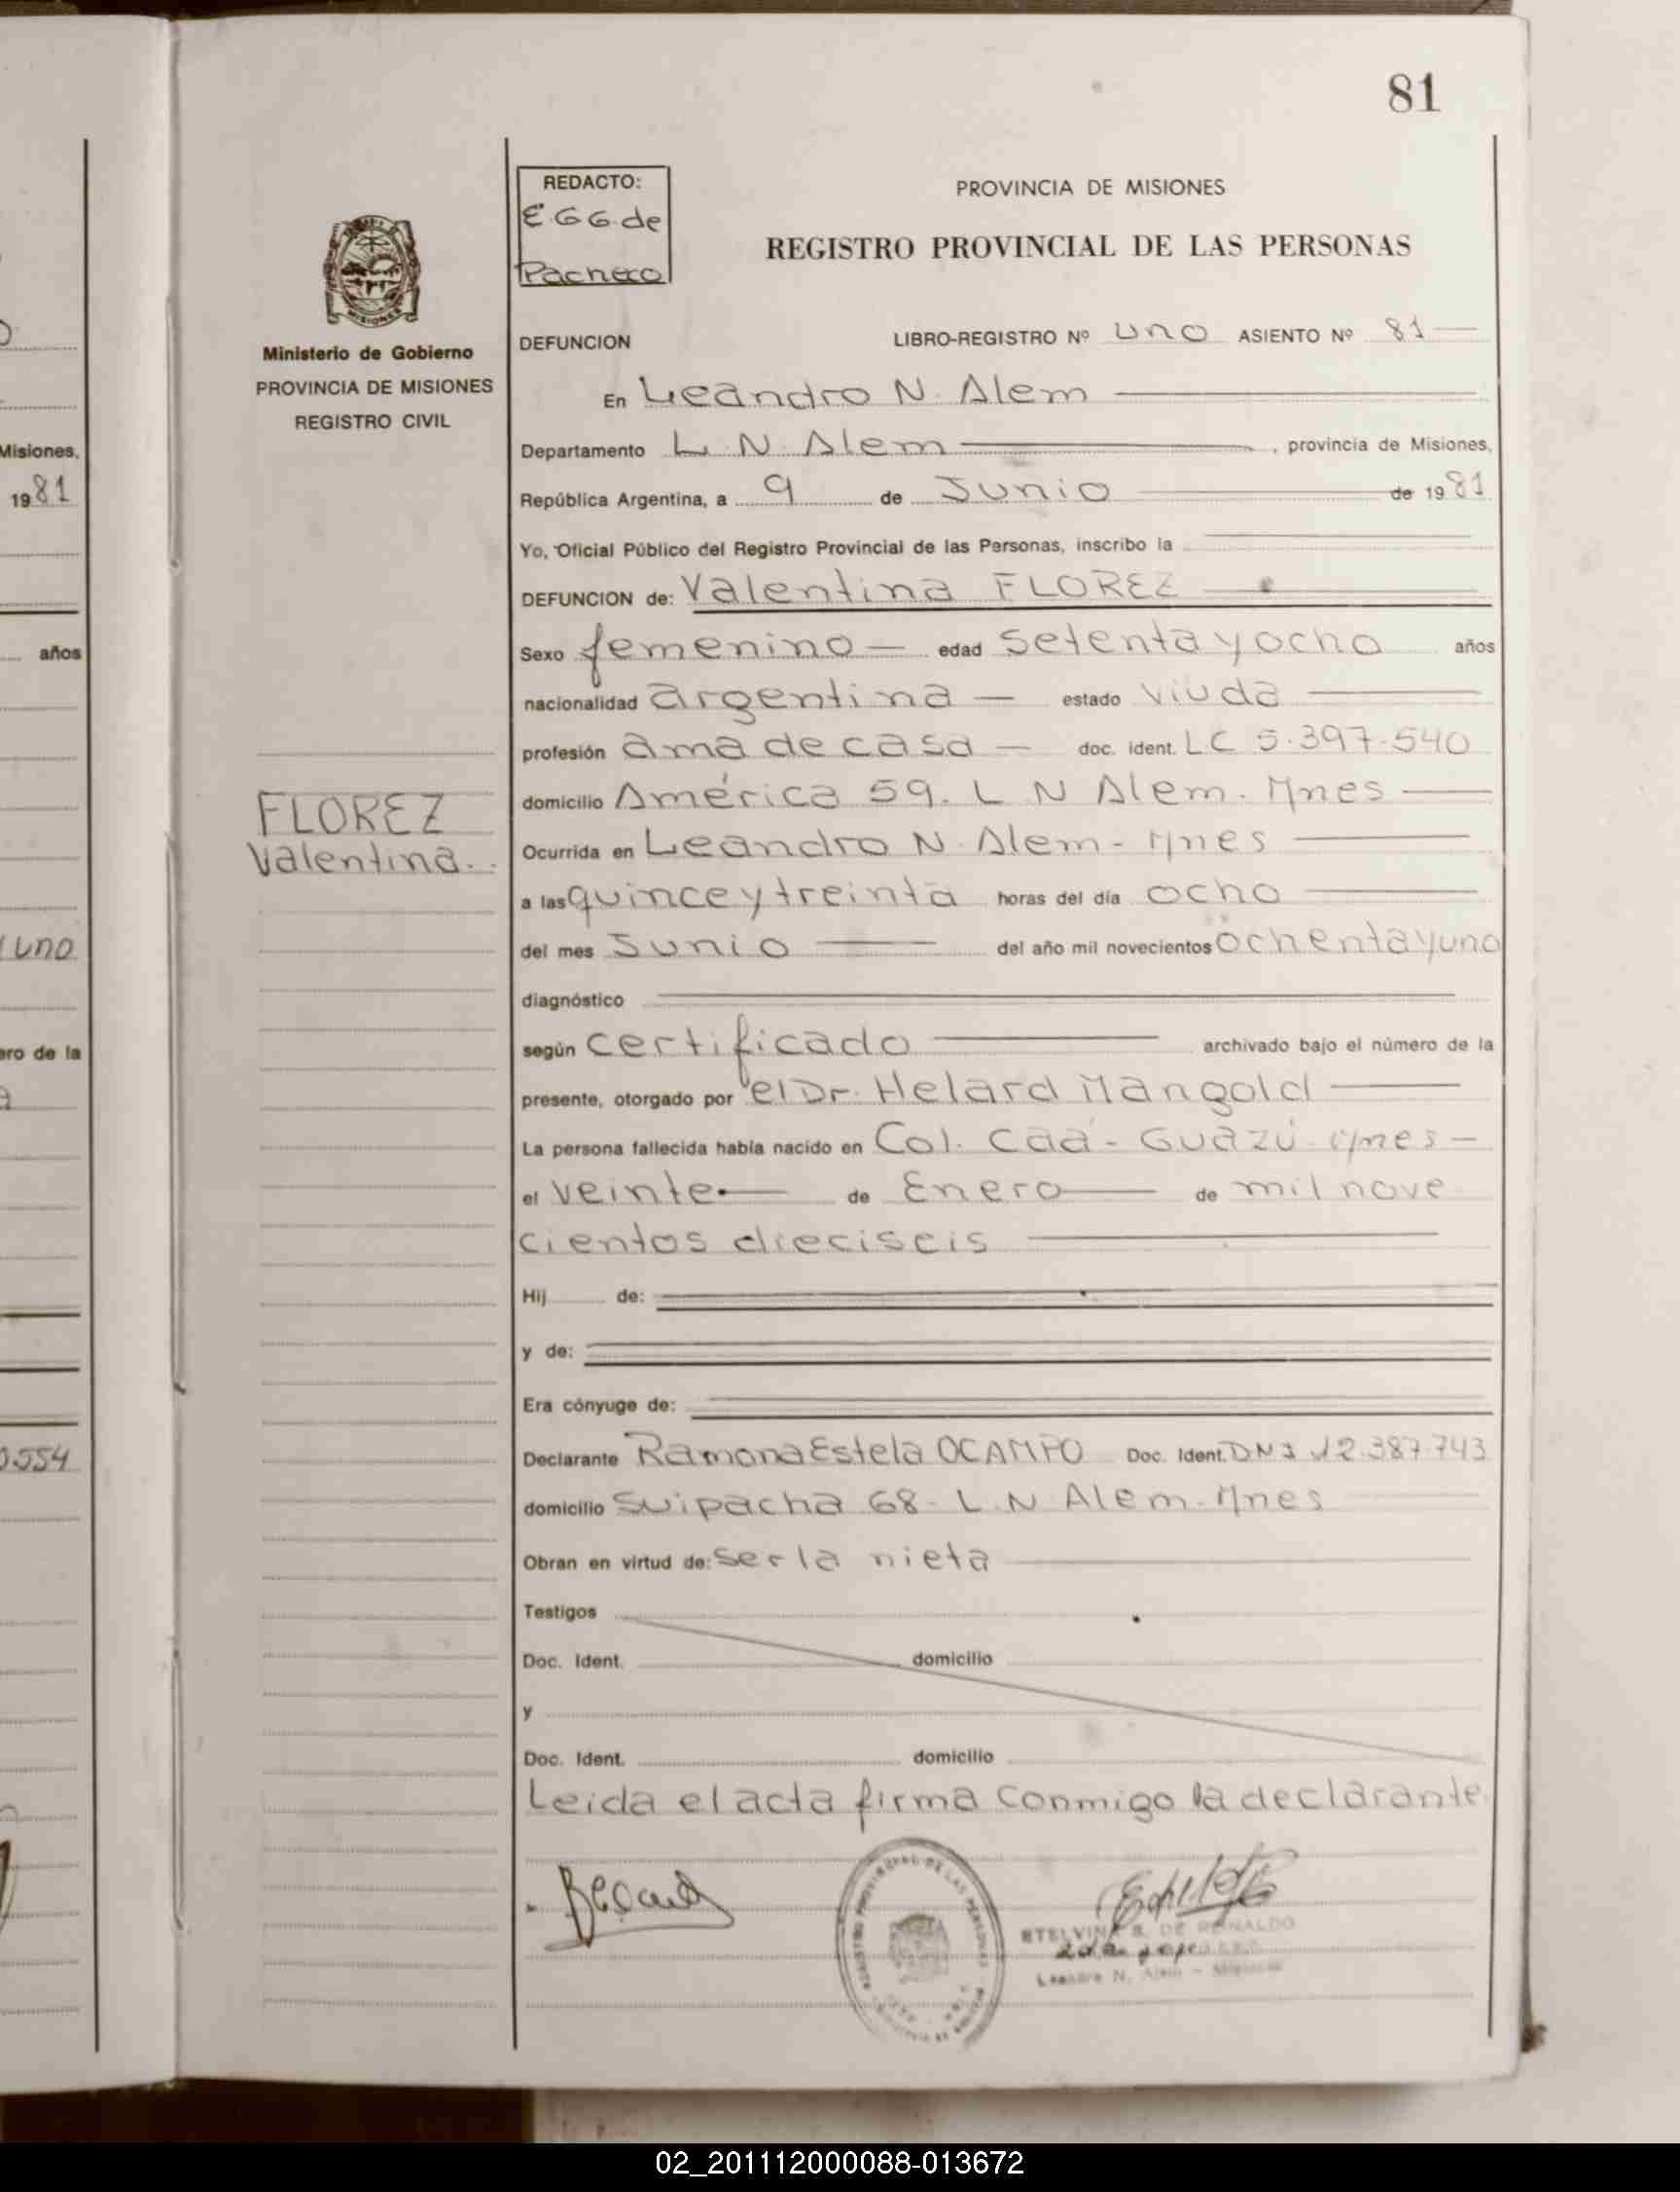 81
REDACTO:
E.G G. de
Pacheco
PROVINCIA DE MISIONES
REGISTRO PROVINCIAL DE LAS PERSONAS
Ministerio de Gobierno
PROVINCIA DE MISIONES
REGISTRO CIVIL
DEFUNCION LIBRO-REGISTRO Nº uno ASIENTO Nº 81
En Leandro N. Alem
Departamento L. N. Alem, provincia de Misiones,
República Argentina, a 9 de Junio de 1981
Yo, Oficial Público del Registro Provincial de las Personas, inscribo la
DEFUNCION de: Valentina FLOREZ
Sexo femenino edad setenta y ocho años
nacionalidad argentina estado viuda
profesión ama de casa doc. ident. LC 5.397.540
domicilio América 59. L N Alem. Mnes
FLOREZ
Valentina.
Ocurrida en Leandro N. Alem - Mnes
a las quince y treinta horas del día ocho
del mes Junio del año mil novecientos ochenta y uno
diagnóstico
según certificado archivado bajo el número de la
presente, otorgado por el Dr. Helard Mangold
La persona fallecida había nacido en Col. Caá - Guazú - Mnes -
el veinte de Enero de mil nove
cientos dieciseis
Hij de:
y de:
Era cónyuge de:
Declarante Ramona Estela OCAMPO Doc. Ident. DNI 12.387.743
domicilio Suipacha 68 - L. N Alem - Mnes
Obran en virtud de: ser la nieta
Testigos
Doc. Ident. domicilio
y
Doc. Ident. domicilio
Leida el acta firma conmigo la declarante.
Misiones,
1981
años
uno
ero de la
0.554
Leandro N. Alem - Misiones
02_201112000088-013672